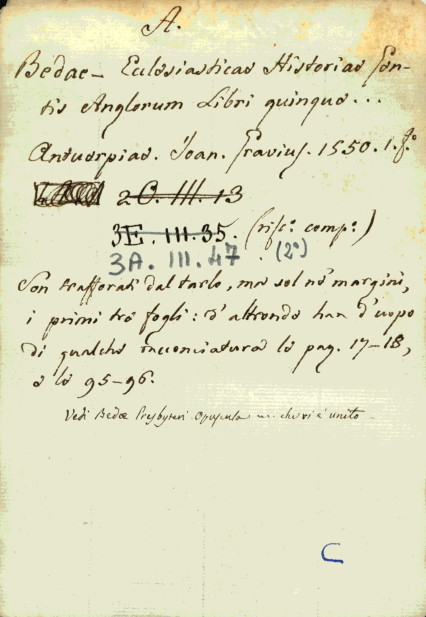 A.
Bedae - Ecclesiasticae Historiae Gen-
tis Anglorum Libri quinque...
Antuerpiae. Ioan. Gravius. 1550. 1. f.º
2.C.III.13
3E.III.35. (risc.º comp.º)
3A.III.47. (2º)
Son trafforati dal tarlo, ma sol ne' margini,
i primi tre fogli: d'altronde han d'uopo
di qualche racconciatura le pag. 17-18,
e le 95-96.
Vedi Bedae Presbyteri Opuscula che vi è unito
C